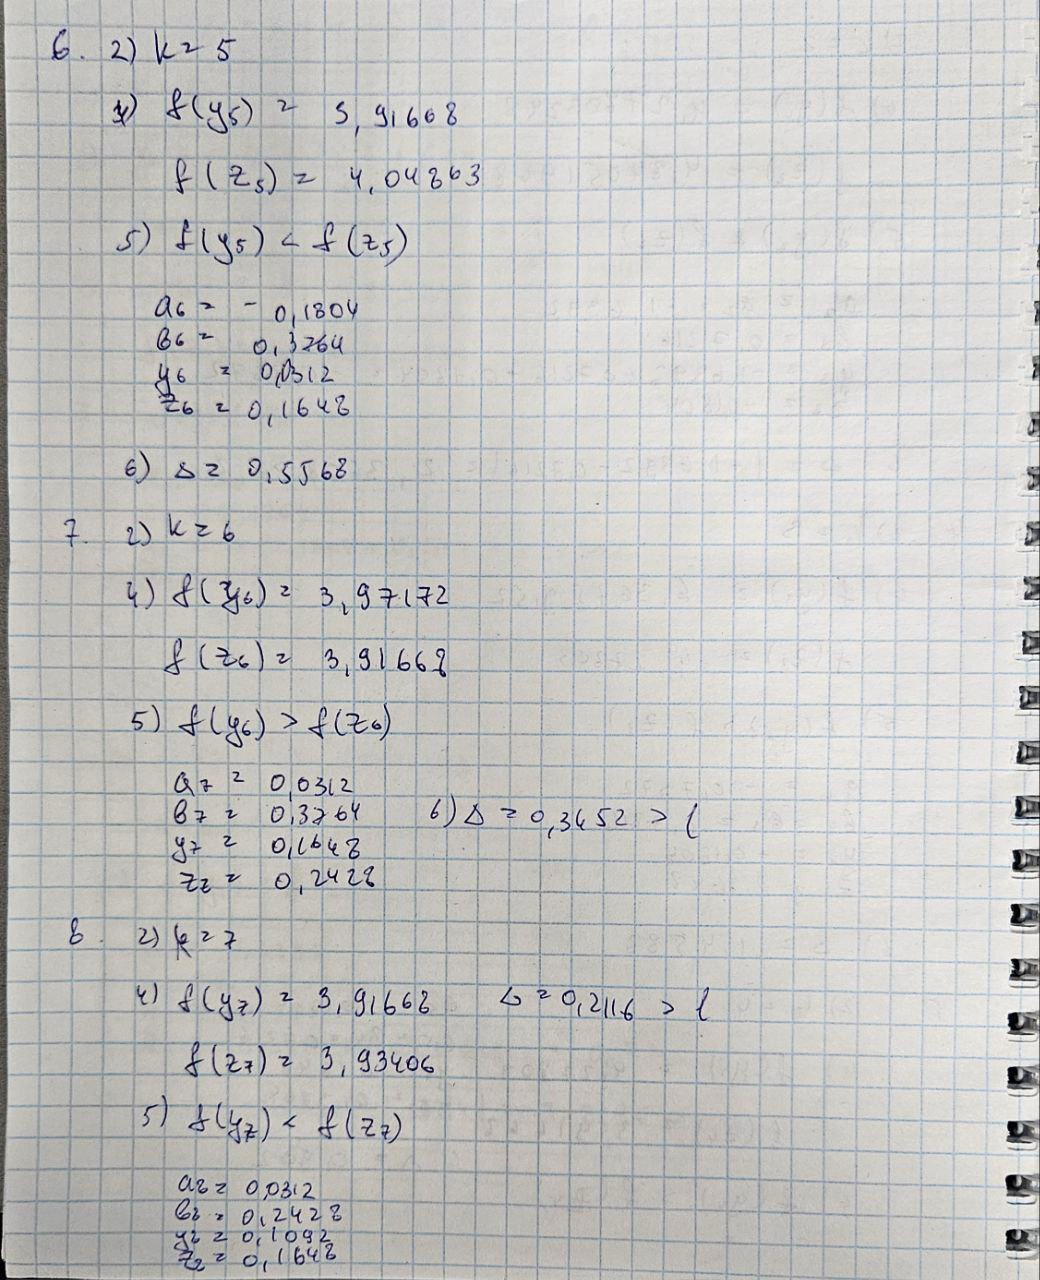 6. 2) k = 5
4) f(y5) = 3,91668
f(z5) = 4,04863
5) f(y5) < f(z5)
a6 = - 0,1804
b6 = 0,3764
y6 = 0,0312
z6 = 0,1648
6) Δ = 0,5568
7. 2) k = 6
4) f(y6) = 3,97172
f(z6) = 3,91668
5) f(y6) > f(z6)
a7 = 0,0312
b7 = 0,3764 6) Δ = 0,3452 > l
y7 = 0,1648
z7 = 0,2428
8. 2) k = 7
4) f(y7) = 3,91668 Δ = 0,2116 > l
f(z7) = 3,93406
5) f(y7) < f(z7)
a8 = 0,0312
b8 = 0,2428
y8 = 0,1092
z8 = 0,1648